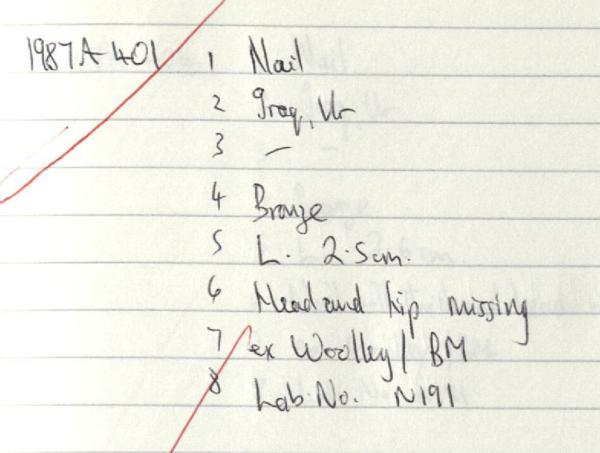 1987A 401 1 Nail
2 Iraq, Ur
3 –
4 Bronze
5 L. 2.5cm.
6 Head and tip missing
7 ex Woolley / BM
8 Lab. No. N191